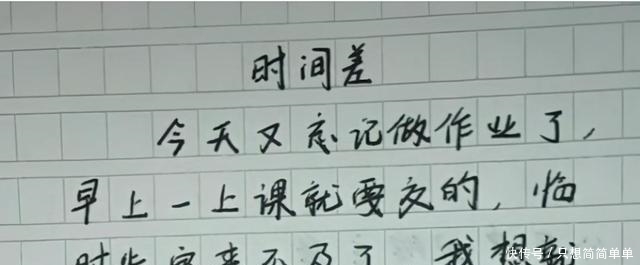 时间差
今天又忘记做作业了，
早上一上课就要交的，临
时些实来不及了 我想
快传号/只想简简单单